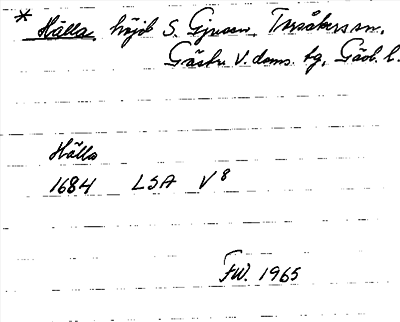 * Hälla, höjd S. Gjusen, Torsåkers sn,
Gästr. V. doms. tg, Gävl. l.
Hälla
1684 LSA V 8
FW. 1965